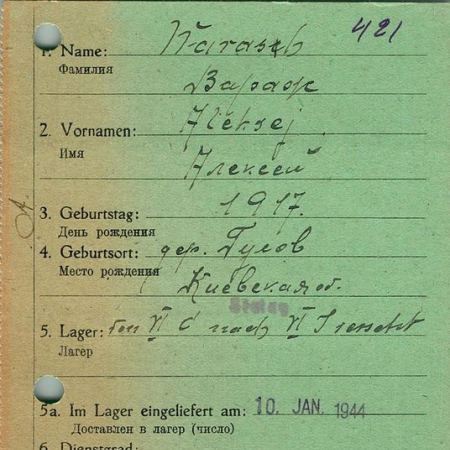 421
1. Name:
Фамилия
Вараж
2. Vornamen: Aleksej
Имя
Алексей
3. Geburtstag: 1917.
День рождения
4. Geburtsort: дер. Гулов
Место рождения
Киевская об.
Stalag
5. Lager: von VI C nach VI J versetzt
Лагер
5a. Im Lager eingeliefert am: 10. JAN. 1944
Доставлен в лагер (число)
6. Dienstgrad: